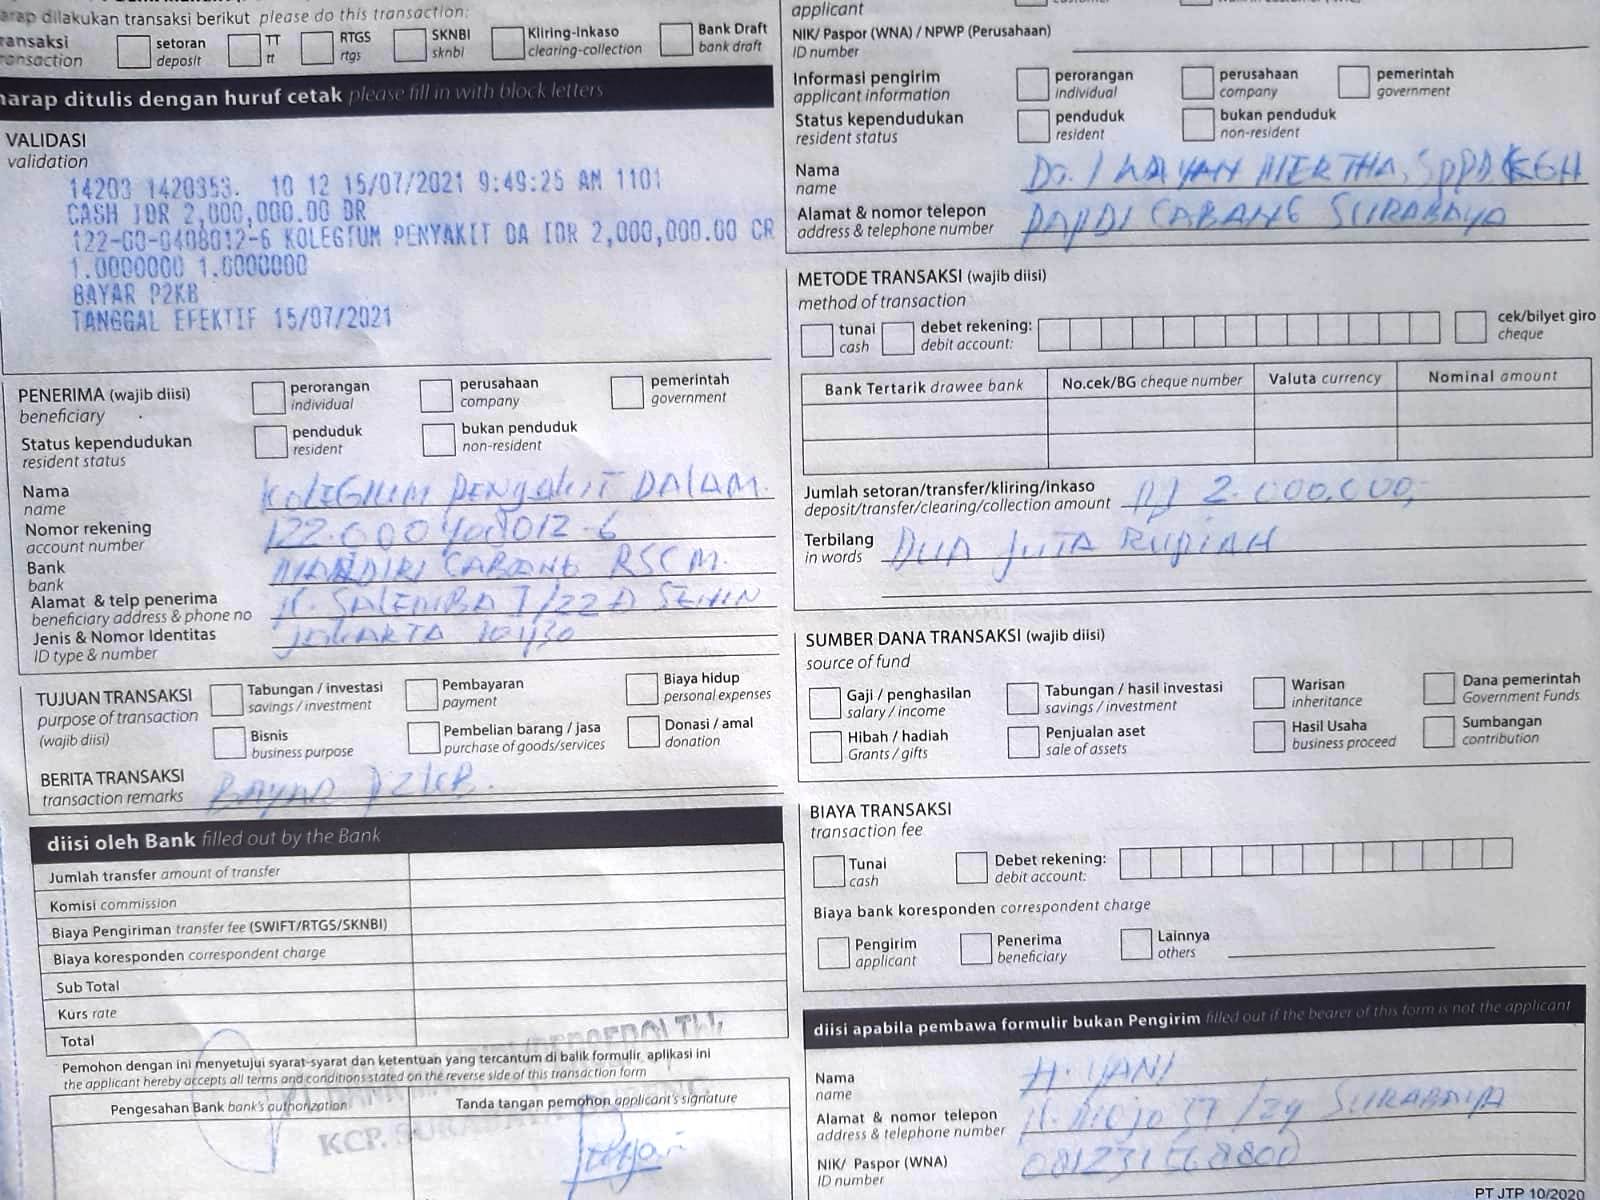 harap dilakukan transaksi berikut please do this transaction:
transaksi
transaction
setoran
deposit
TT
tt
RTGS
rtgs
SKNBI
sknbi
Kliring-Inkaso
clearing-collection
Bank Draft
bank draft
harap ditulis dengan huruf cetak please fill in with block letters
VALIDASI
validation
14203 1420353. 10 12 15/07/2021 9:49:25 AM 1101
CASH IDR 2,000,000.00 DR
122-00-0408012-6 KOLEGIUM PENYAKIT DA IDR 2,000,000.00 CR
1.0000000 1.0000000
BAYAR P2KB
TANGGAL EFEKTIF 15/07/2021
PENERIMA (wajib diisi)
beneficiary
perorangan
individual
perusahaan
company
pemerintah
government
Status kependudukan
resident status
penduduk
resident
bukan penduduk
non-resident
Nama KOLEGIUM PENYAKIT DALAM
name
Nomor rekening 122.000408012-6
account number
Bank MANDIRI CABANG RSCM.
bank
Alamat & telp penerima Jl. SALEMBA I/22 D SENIN
beneficiary address & phone no
Jenis & Nomor Identitas JAKARTA 10430
ID type & number
TUJUAN TRANSAKSI
purpose of transaction
(wajib diisi)
Tabungan / investasi
savings / investment
Pembayaran
payment
Biaya hidup
personal expenses
Bisnis
business purpose
Pembelian barang / jasa
purchase of goods/services
Donasi / amal
donation
BERITA TRANSAKSI
transaction remarks BAYAR P2KB.
diisi oleh Bank filled out by the Bank
Jumlah transfer amount of transfer
Komisi commission
Biaya Pengiriman transfer fee (SWIFT/RTGS/SKNBI)
Biaya koresponden correspondent charge
Sub Total
Kurs rate
Total
Pemohon dengan ini menyetujui syarat-syarat dan ketentuan yang tercantum di balik formulir aplikasi ini
the applicant hereby accepts all terms and conditions stated on the reverse side of this transaction form
Pengesahan Bank bank's authorization
Tanda tangan pemohon applicant's signature
KCP. SURABAYA
applicant
NIK/ Paspor (WNA) / NPWP (Perusahaan)
ID number
Informasi pengirim
applicant information
perorangan
individual
perusahaan
company
pemerintah
government
Status kependudukan
resident status
penduduk
resident
bukan penduduk
non-resident
Nama
name
Alamat & nomor telepon PAPDI CABANG SURABAYA
address & telephone number
METODE TRANSAKSI (wajib diisi)
method of transaction
tunai
cash
debet rekening:
debit account:
cek/bilyet giro
cheque
Bank Tertarik drawee bank
No.cek/BG cheque number
Valuta currency
Nominal amount
Jumlah setoran/transfer/kliring/inkaso Rp 2.000.000,-
deposit/transfer/clearing/collection amount
Terbilang DUA JUTA RUPIAH
in words
SUMBER DANA TRANSAKSI (wajib diisi)
source of fund
Gaji / penghasilan
salary / income
Tabungan / hasil investasi
savings / investment
Warisan
inheritance
Dana pemerintah
Government Funds
Hibah / hadiah
Grants / gifts
Penjualan aset
sale of assets
Hasil Usaha
business proceed
Sumbangan
contribution
BIAYA TRANSAKSI
transaction fee
Tunai
cash
Debet rekening:
debit account:
Biaya bank koresponden correspondent charge
Pengirim
applicant
Penerima
beneficiary
Lainnya
others
diisi apabila pembawa formulir bukan Pengirim filled out if the bearer of this form is not the applicant
Nama H. YANI
name
Alamat & nomor telepon SURABAYA
address & telephone number
NIK/ Paspor (WNA)
ID number
PT JTP 10/2020